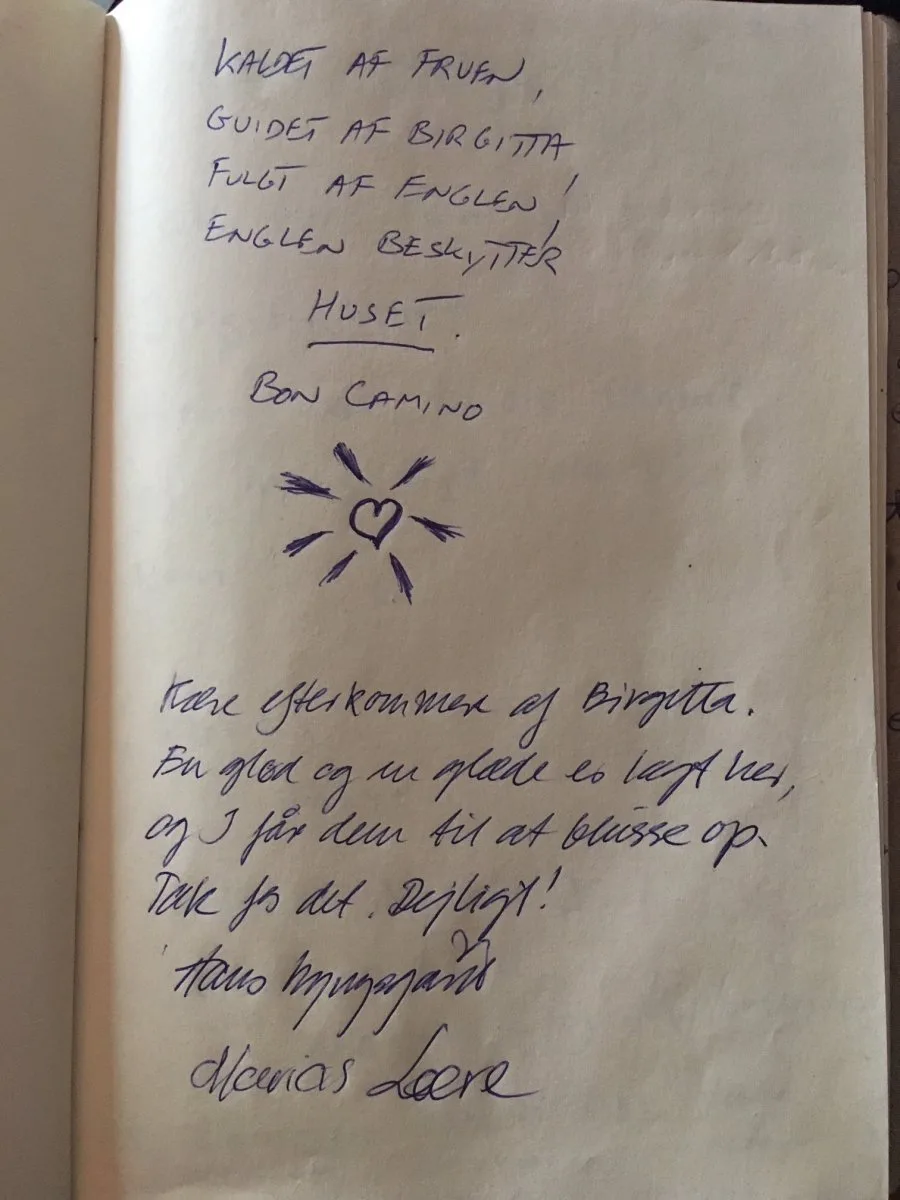 KALDET AF FRUEN,
GUIDET AF BIRGITTA
FULGT AF ENGLEN!
ENGLEN BESKYTTER
HUSET.
BON CAMINO
Kære efterkommere af Birgitta.
En glød og en glæde er lagt her,
og I får dem til at blusse op.
Tak for det. Dejligt!
Hans
Marias Lære